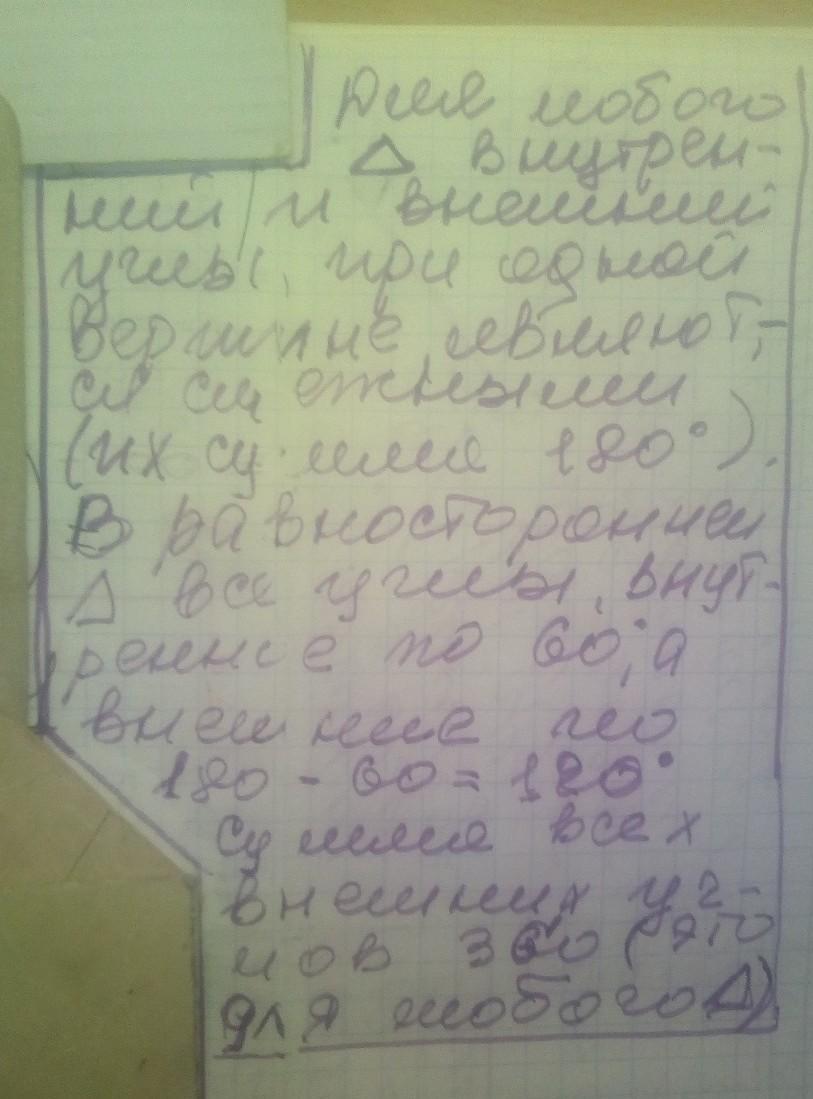 Для любого
△ внутрен-
ний и внешний
углы, при одной
вершине, являют-
ся смежными
(их сумма 180°).
В равностороннем
△ все углы, внут-
ренние по 60°, а
внешние по
180 - 60 = 120°
Сумма всех
внешних уг-
лов 360 (это
для любого △)